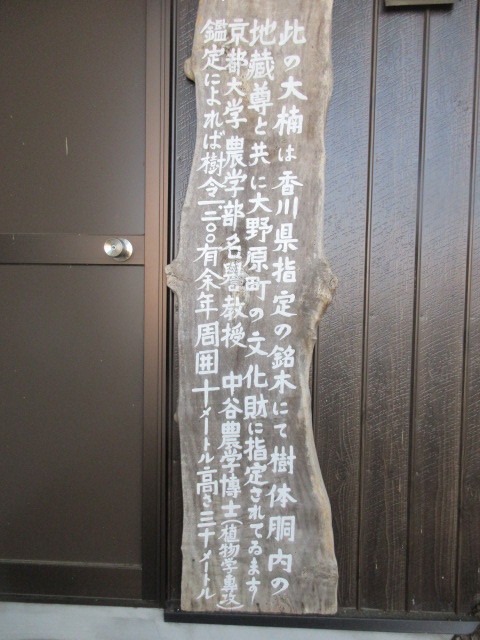 此の大楠は香川県指定の銘木にて樹体胴内の
地蔵尊と共に大野原町の文化財に指定されてゐます
京都大学農学部名譽教授 中谷農学博士(植物学専攻)
鑑定によれば樹令一二〇〇有余年周囲十メートル高さ三十メートル